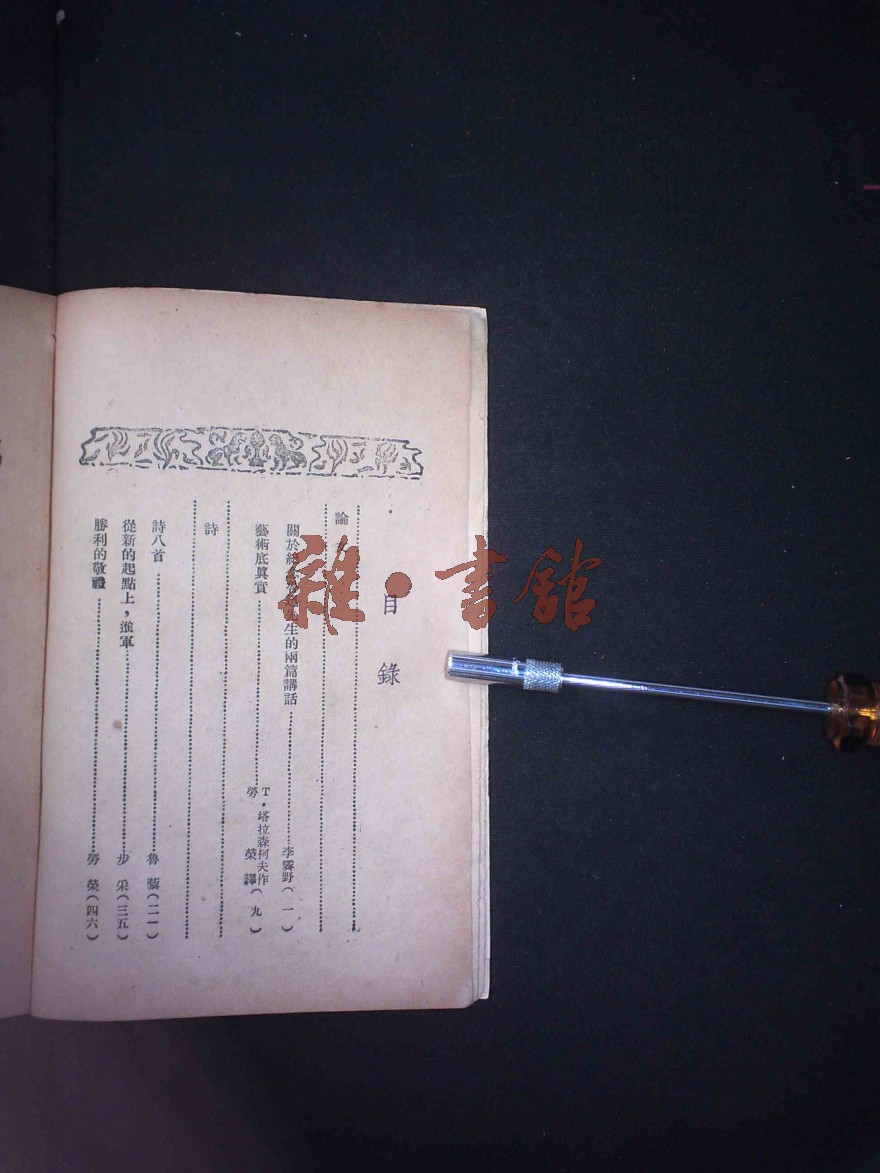 目錄
論
關於 先生的兩篇講話 李霽野(一)
藝術底眞實 T·塔拉森柯夫作 勞榮譯(九)
詩
詩八首 魯藜(二一)
從新的起點上,進軍 步采(三五)
勝利的敬禮 勞榮(四六)
雜·書館